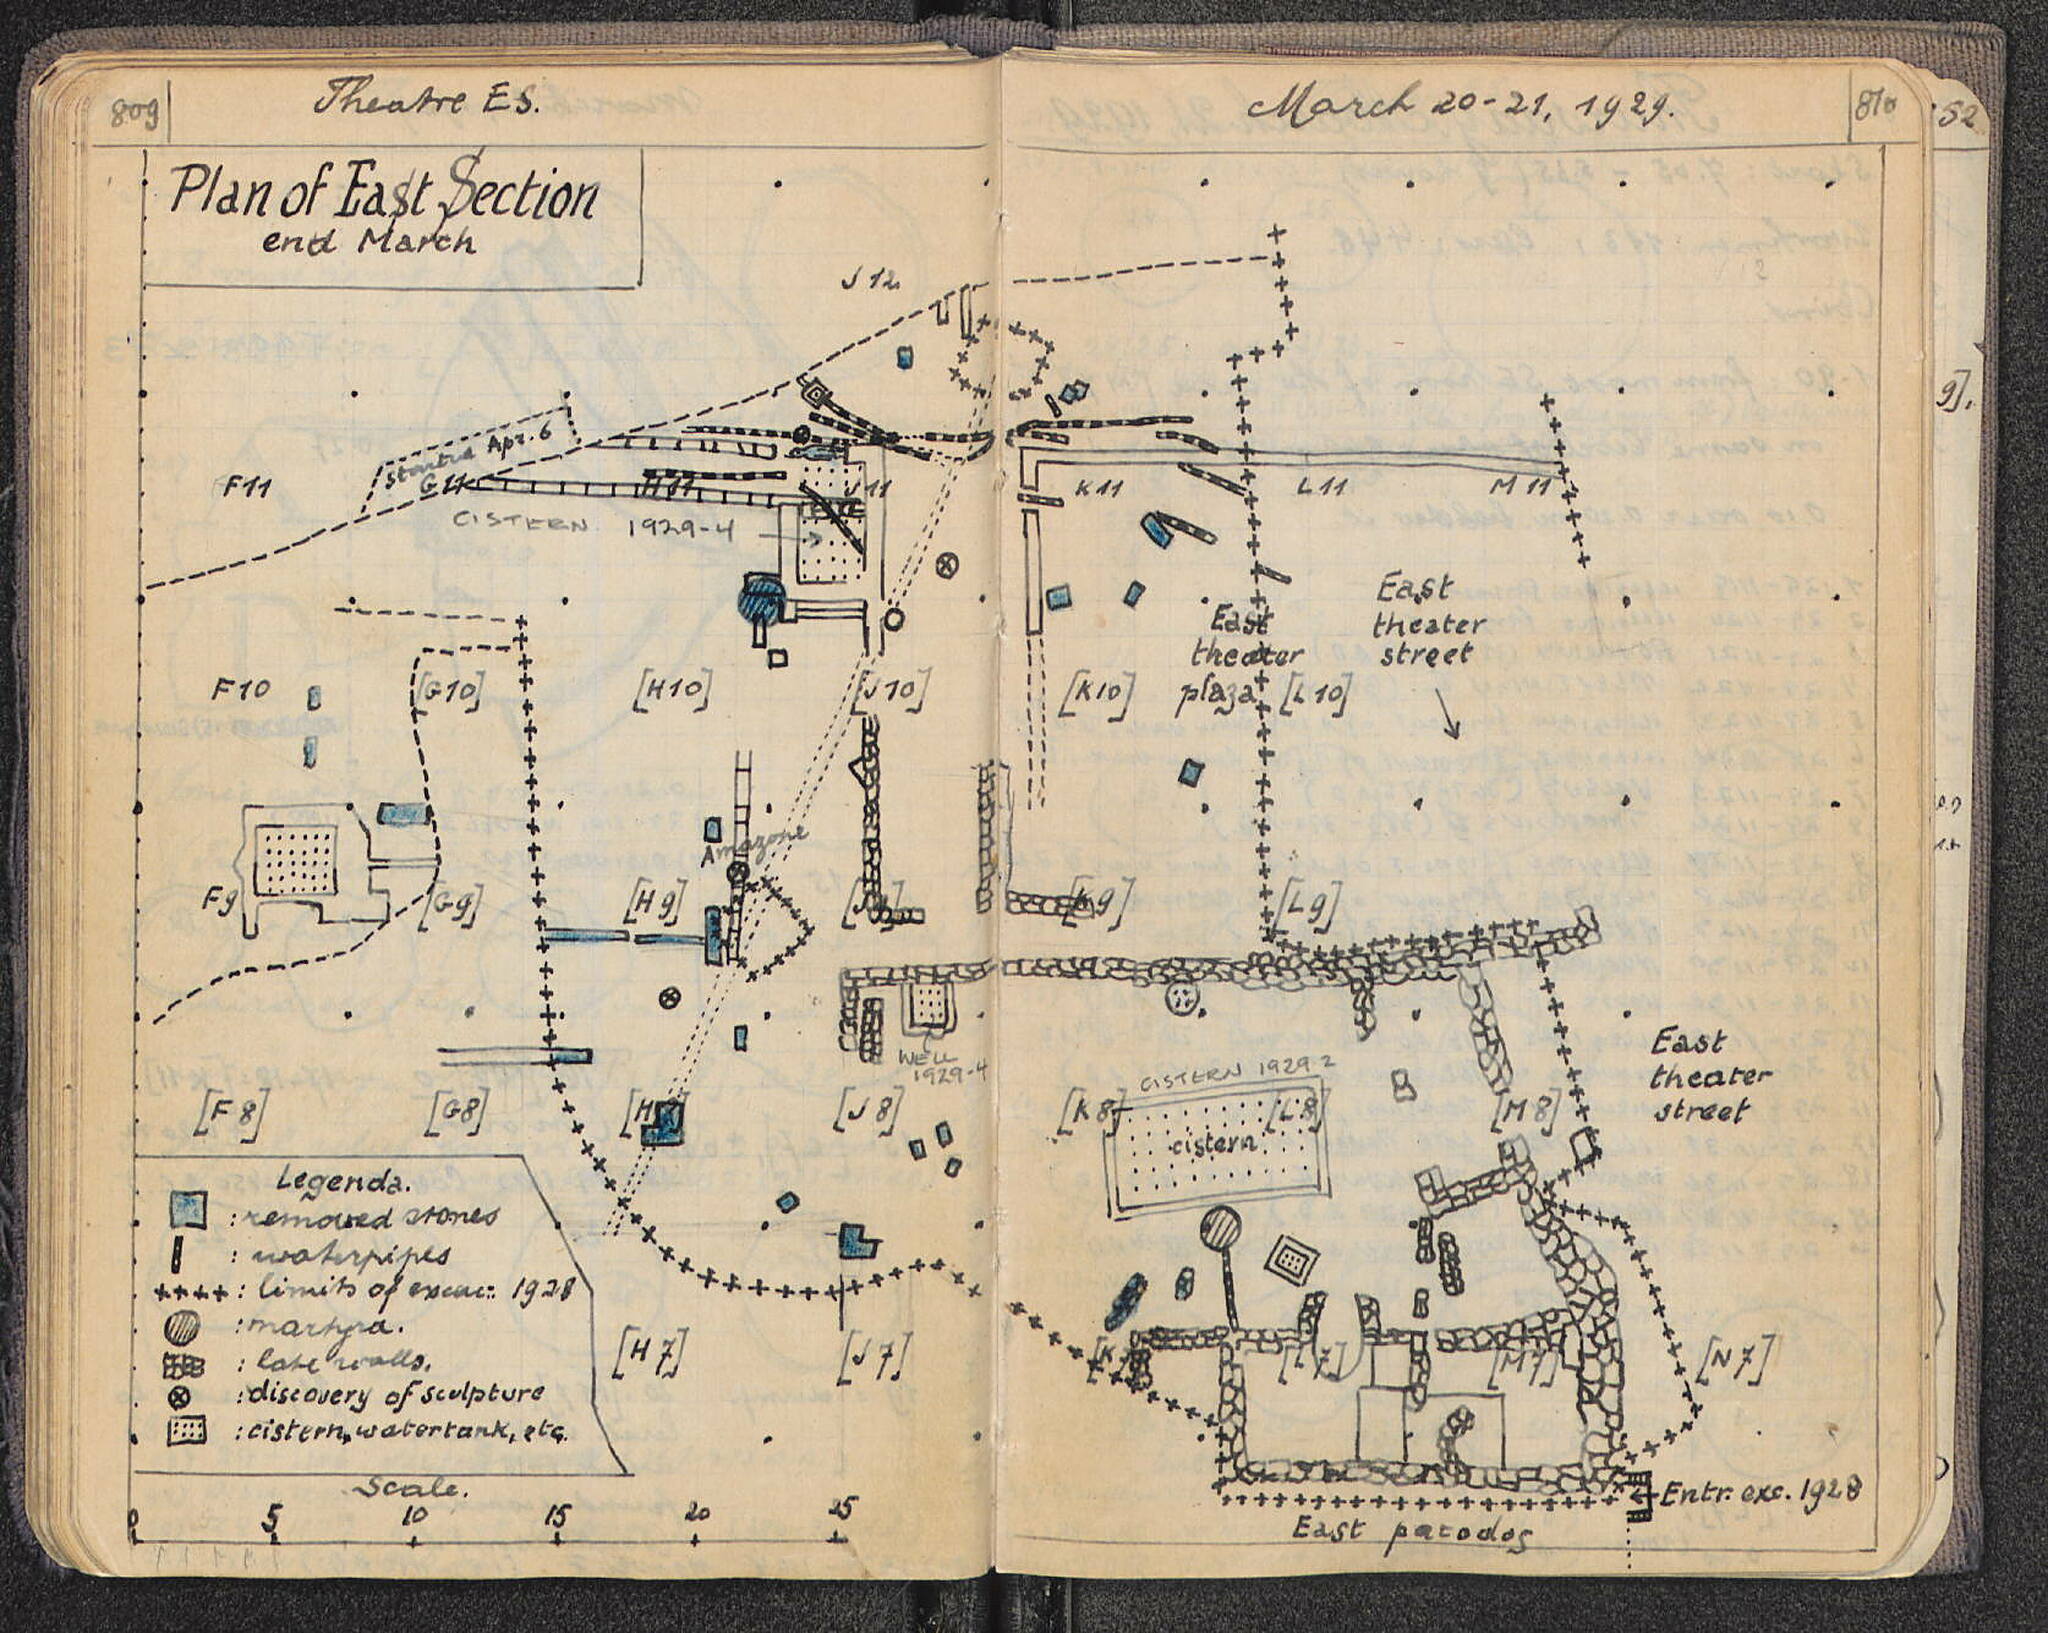 809
Theatre ES.
March 20-21, 1929.
810
52
Plan of East Section
end March
J 12
9].
Started Apr. 6
F11
G11
H11
J11
K11
L11
M 11
CISTERN 1929-4
East
theater
street
East
theater
plaza
F10
[G10]
[H10]
[J10]
[K10]
[L10]
Amazone
F9
[G9]
[H9]
[K9]
[L9]
WELL
1929-4
CISTERN 1929 2
East
theater
street
[F 8]
[G8]
[J 8]
[K 8]
[L 8]
[M 8]
cistern
Legenda.
: removed stones
: waterpipes
: limits of excav: 1928
: late walls.
: discovery of sculpture
: cistern, watertank, etc.
[H 7]
[J 7]
[L 7]
[M7]
[N 7]
Scale.
0 5 10 15 20 25
Entr. exc. 1928
East parodos